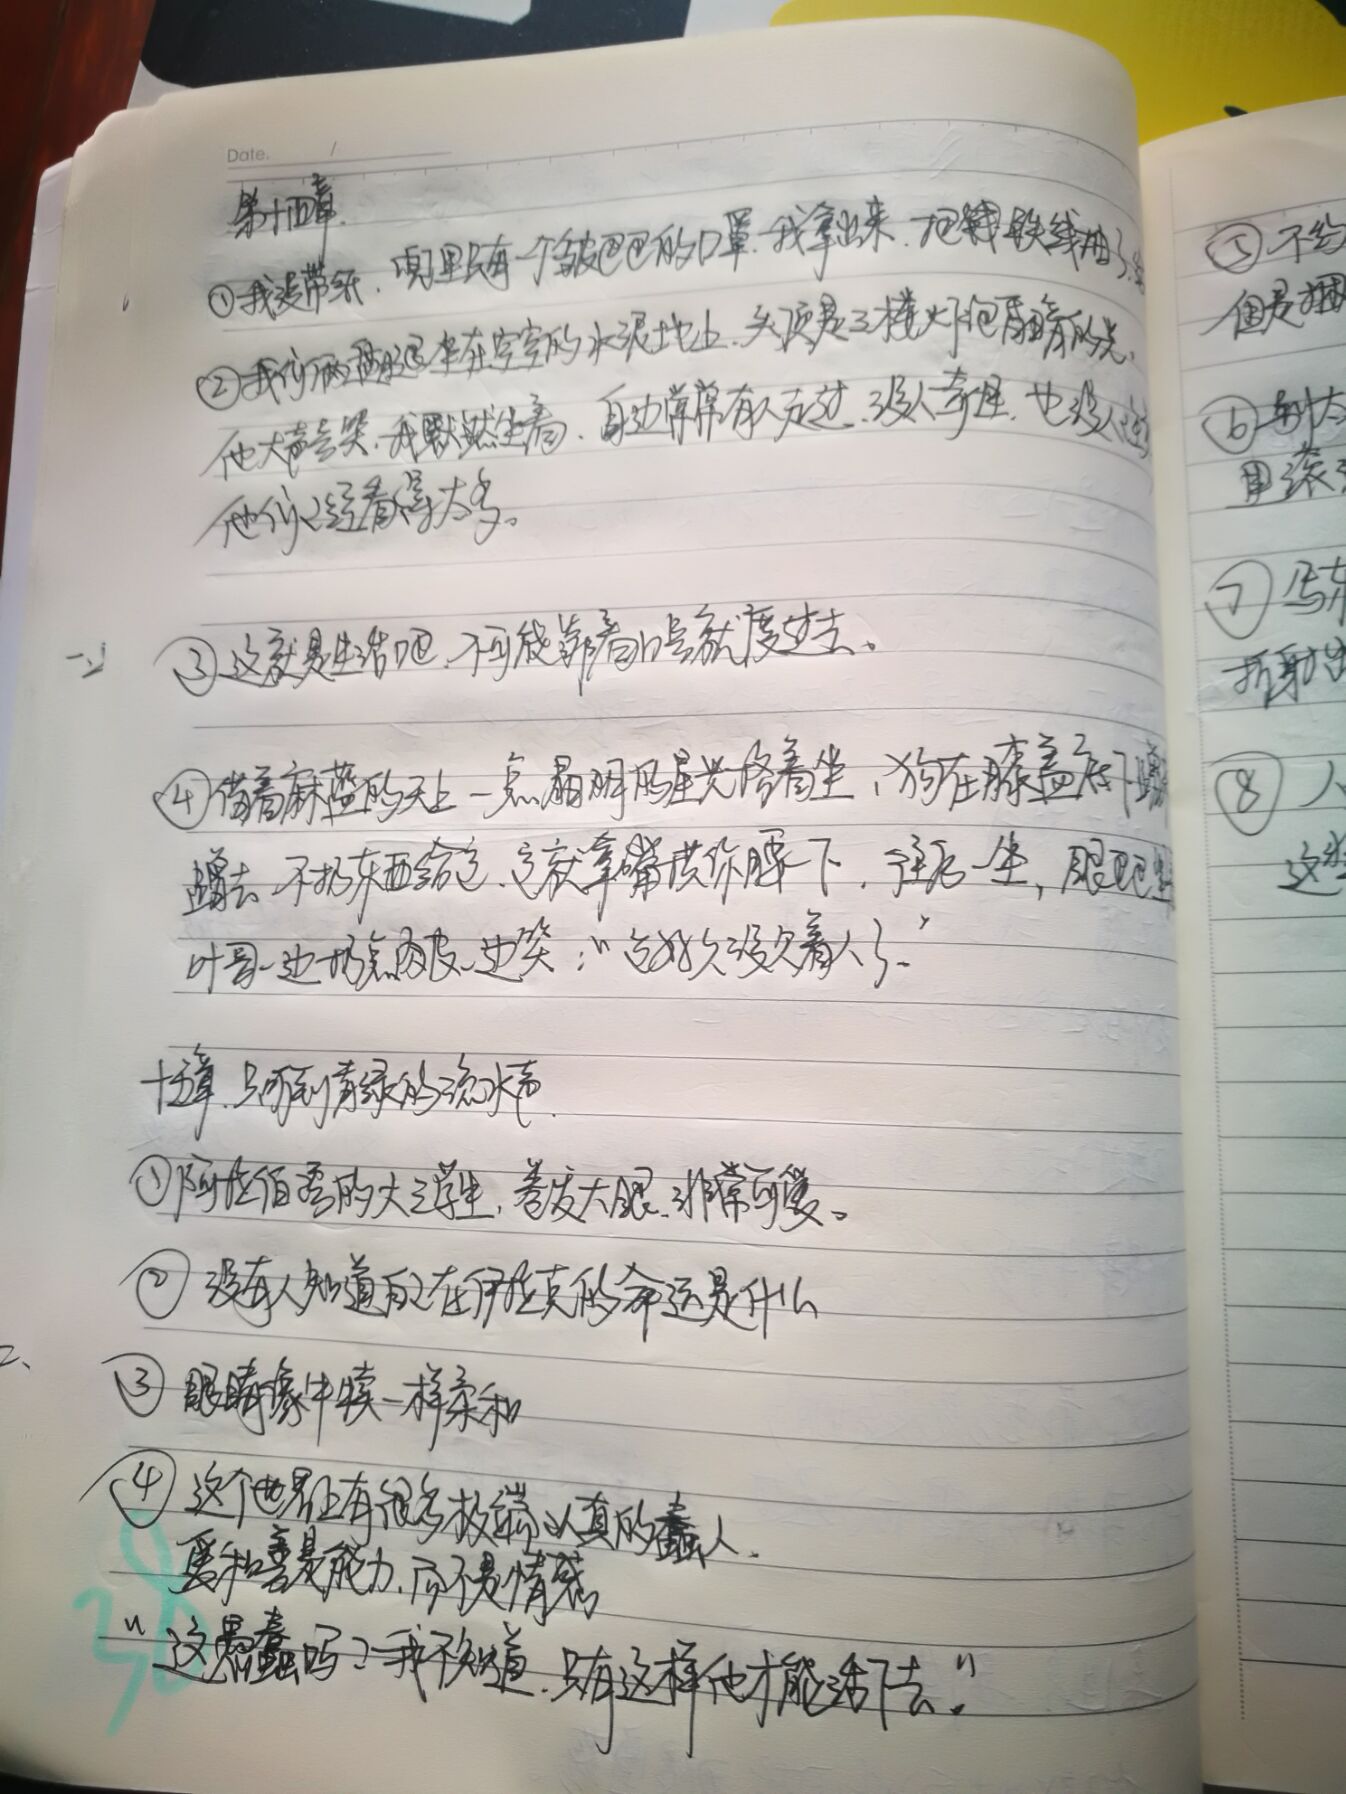 Date. /
第十四章.
①我没带纸、兜里只有一个皱巴巴的口罩.我拿出来.把 铁线抽了.
②我们俩 坐在空空的水泥地上.头顶是三楼灯泡 的光.
他大声号哭.我默然坐着.身边常常有人走过.没人奇怪.也没人
他们已经看得太多。
③这就是生活吧.不可能靠着 就度过去。
④借着麻蓝的天上一点 的星光 着坐、狗在膝盖底下
去.不扔东西给它.它就拿嘴拱你腰一下.往后一坐,眼巴巴
叶哥一边扔点肉皮一边笑:"它 没欠着人了."
十五章.只听到青绿的流水声.
①阿拉伯裔的大学生,卷发大眼.非常可爱。
② 没有人知道自己在伊拉克的命运是什么
③ 眼睛像牛犊一样柔和
④ 这个世界上有很多极端认真的蠢人.
爱和善是能力.而不是情感
"这愚蠢吗?我不知道.只有这样他才能活下去."
⑤ 不
个是
⑥ 到
用滚
⑦ 马东
折射出
⑧ 人
这些